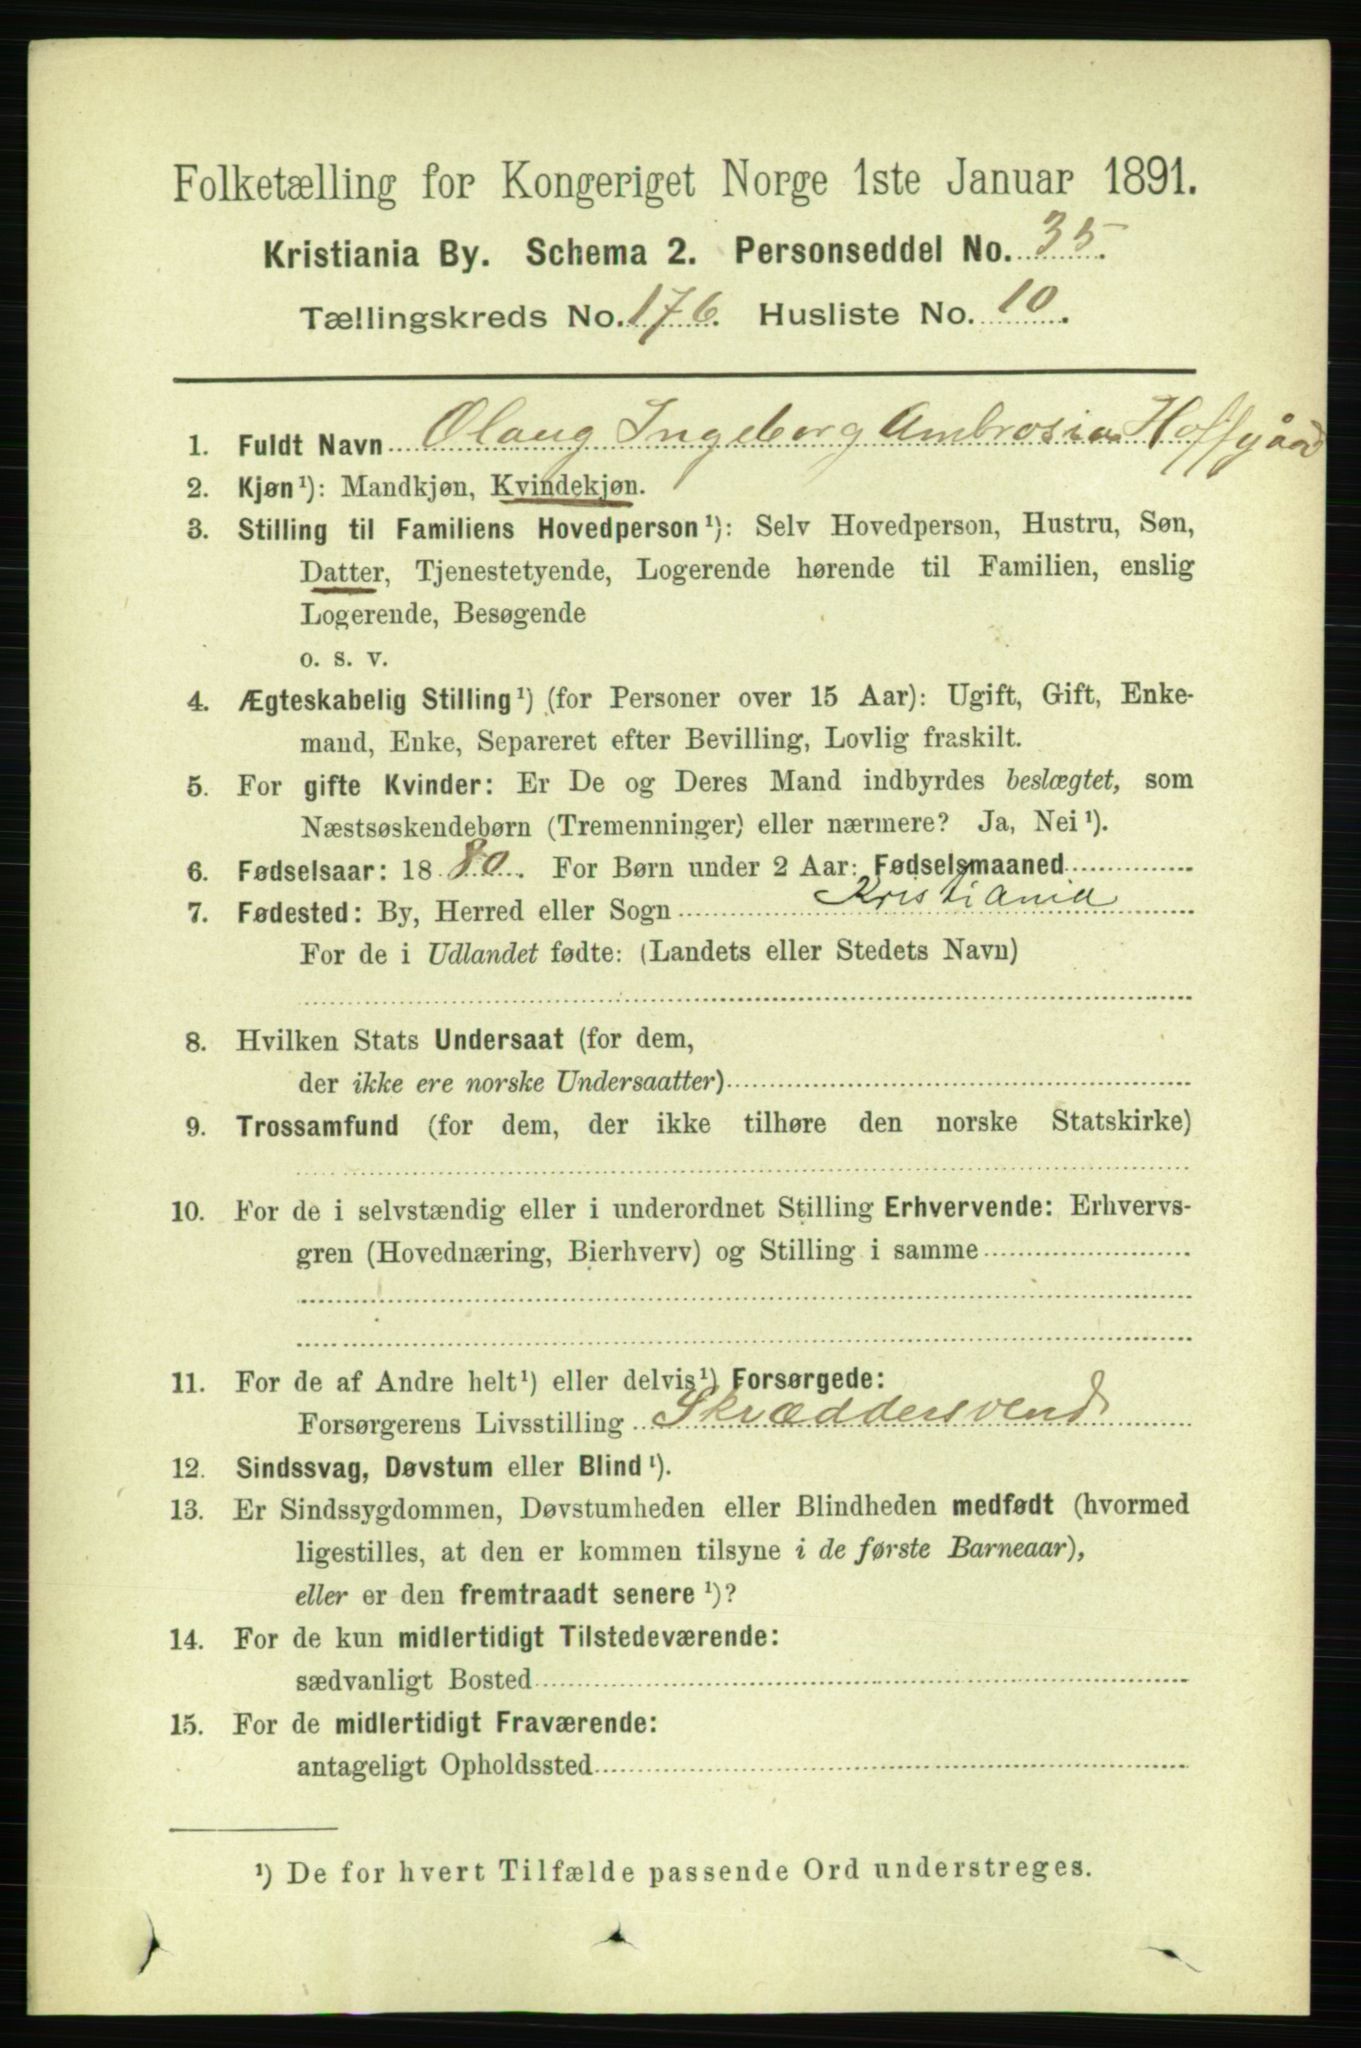 Folketælling for Kongeriget Norge 1ste Januar 1891.
Kristiania By. Schema 2. Personseddel No. 35.
Tællingskreds No. 176. Husliste No. 10.
1. Fuldt Navn Olaug Ingeborg Ambrosia Hoffgård
2. Kjøn¹): Mandkjøn, Kvindekjøn.
3. Stilling til Familiens Hovedperson¹): Selv Hovedperson, Hustru, Søn,
Datter, Tjenestetyende, Logerende hørende til Familien, enslig
Logerende, Besøgende
o. s. v.
4. Ægteskabelig Stilling¹) (for Personer over 15 Aar): Ugift, Gift, Enke-
mand, Enke, Separeret efter Bevilling, Lovlig fraskilt.
5. For gifte Kvinder: Er De og Deres Mand indbyrdes beslægtet, som
Næstsøskendebørn (Tremenninger) eller nærmere? Ja, Nei¹).
6. Fødselsaar: 1880. For Børn under 2 Aar: Fødselsmaaned
7. Fødested: By, Herred eller Sogn Kristiania
For de i Udlandet fødte: (Landets eller Stedets Navn)
8. Hvilken Stats Undersaat (for dem,
der ikke ere norske Undersaatter)
9. Trossamfund (for dem, der ikke tilhøre den norske Statskirke)
10. For de i selvstændig eller i underordnet Stilling Erhvervende: Erhvervs-
gren (Hovednæring, Bierhverv) og Stilling i samme
11. For de af Andre helt¹) eller delvis¹) Forsørgede:
Forsørgerens Livsstilling Skræddersvend
12. Sindssvag, Døvstum eller Blind¹).
13. Er Sindssygdommen, Døvstumheden eller Blindheden medfødt (hvormed
ligestilles, at den er kommen tilsyne i de første Barneaar),
eller er den fremtraadt senere¹)?
14. For de kun midlertidigt Tilstedeværende:
sædvanligt Bosted
15. For de midlertidigt Fraværende:
antageligt Opholdssted
¹) De for hvert Tilfælde passende Ord understreges.